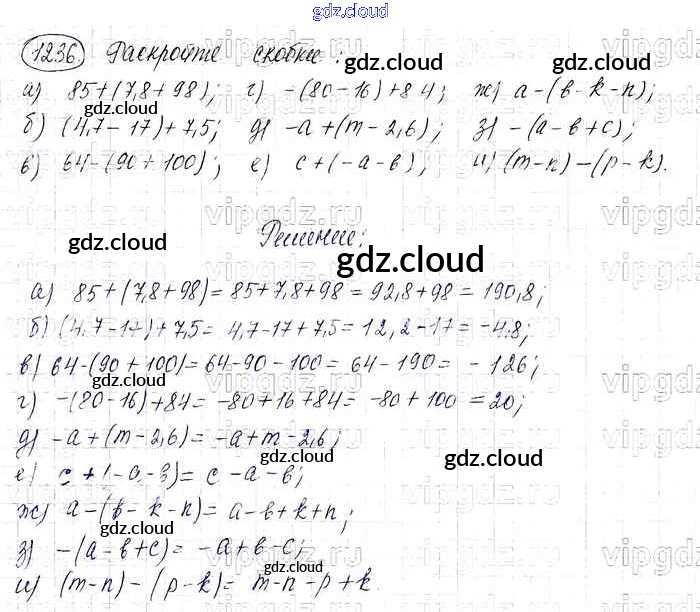 gdz.cloud
1236. Раскройте скобки:
а) 85+(7,8+98); г) -(80-16)+84; ж) a-(b-k-n);
б) (4,7-17)+7,5; д) -a+(m-2,6); з) -(a-b+c);
в) 64-(90+100); е) c+(-a-b); и) (m-n)-(p-k).
Решение;
а) 85+(7,8+98)=85+7,8+98=92,8+98=190,8;
б) (4,7-17)+7,5= 4,7-17+7,5=12,2-17=-4,8;
в) 64-(90+100)=64-90-100=64-190= -126;
г) -(80-16)+84= -80+16+84= -80+100=20;
д) -a+(m-2,6)=-a+m-2,6;
е) c+(-a-b)= c-a-b;
ж) a-(b-k-n)= a-b+k+n;
з) -(a-b+c)= -a+b-c;
и) (m-n)-(p-k)= m-n-p+k.